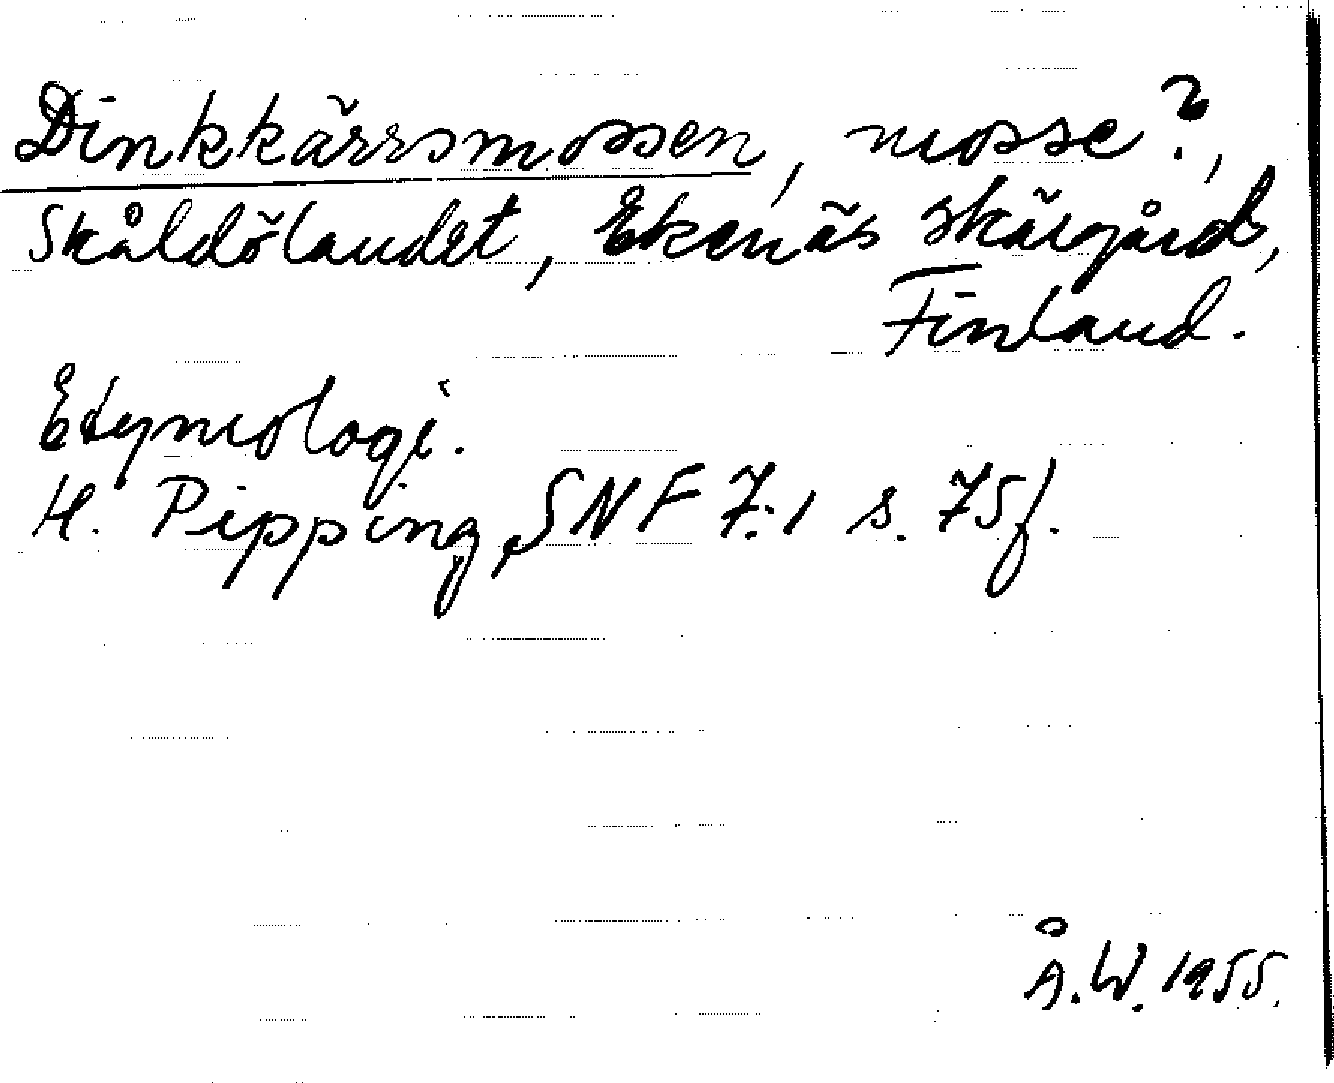 Dinkkärrsmossen, mosse?,
Skåldölandet, Ekenäs skärgård,
Finland.
Etymologi.
H. Pipping, SNF 7:1 s. 75f.
Å.W. 1955.